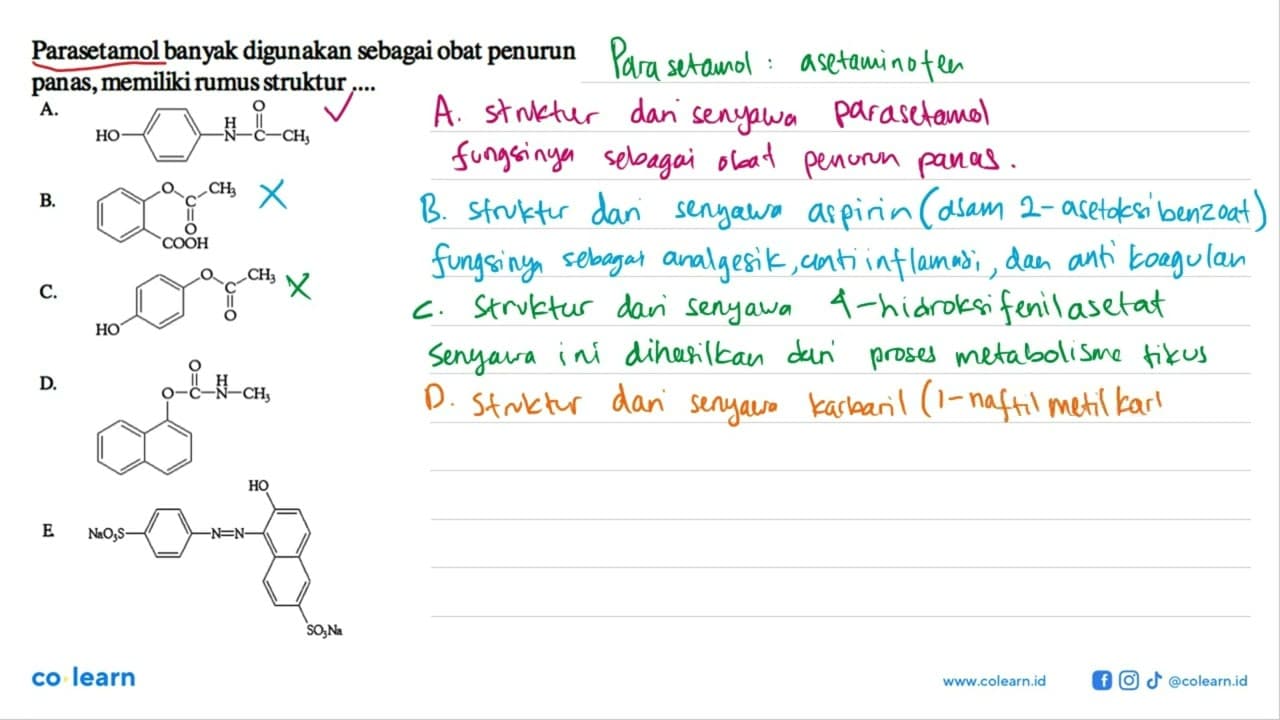 Parasetamol banyak digunakan sebagai obat penurun
panas, memiliki rumus struktur ....
Parasetamol : asetaminofen
A.
HO
H
N
O
C
CH₃
A. struktur dari senyawa parasetamol
fungsinya sebagai obat penurun panas.
B.
O
C
CH₃
O
COOH
B. struktur dari senyawa aspirin (asam 2-asetoksi benzoat)
fungsinya sebagai analgesik, anti inflamasi, dan anti koagulan
C.
O
C
CH₃
O
HO
C. Struktur dari senyawa 4-hidroksi fenil asetat
Senyawa ini dihasilkan dari proses metabolisme tikus
D.
O
O-C-N-CH₃
H
D. Struktur dari senyawa karbaril (1-naftil metil kar
E
HO
NaO₃S
N=N
SO₃Na
co learn
www.colearn.id
@colearn.id